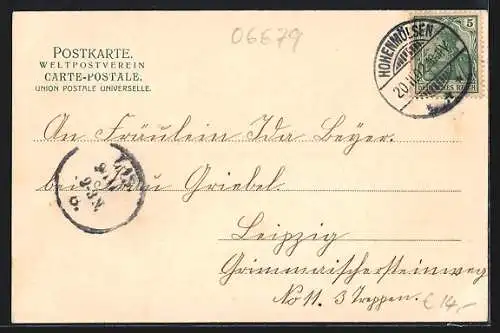 06679
POSTKARTE.
WELTPOSTVEREIN
CARTE-POSTALE.
UNION POSTALE UNIVERSELLE.
5
DEUTSCHES REICH
HOHENMÖLSEN
An Fräulein Ida Beyer.
bei Frau Griebel.
Leipzig
Grimmaischersteinweg
No 11. 3 Treppen.
€ 14,-